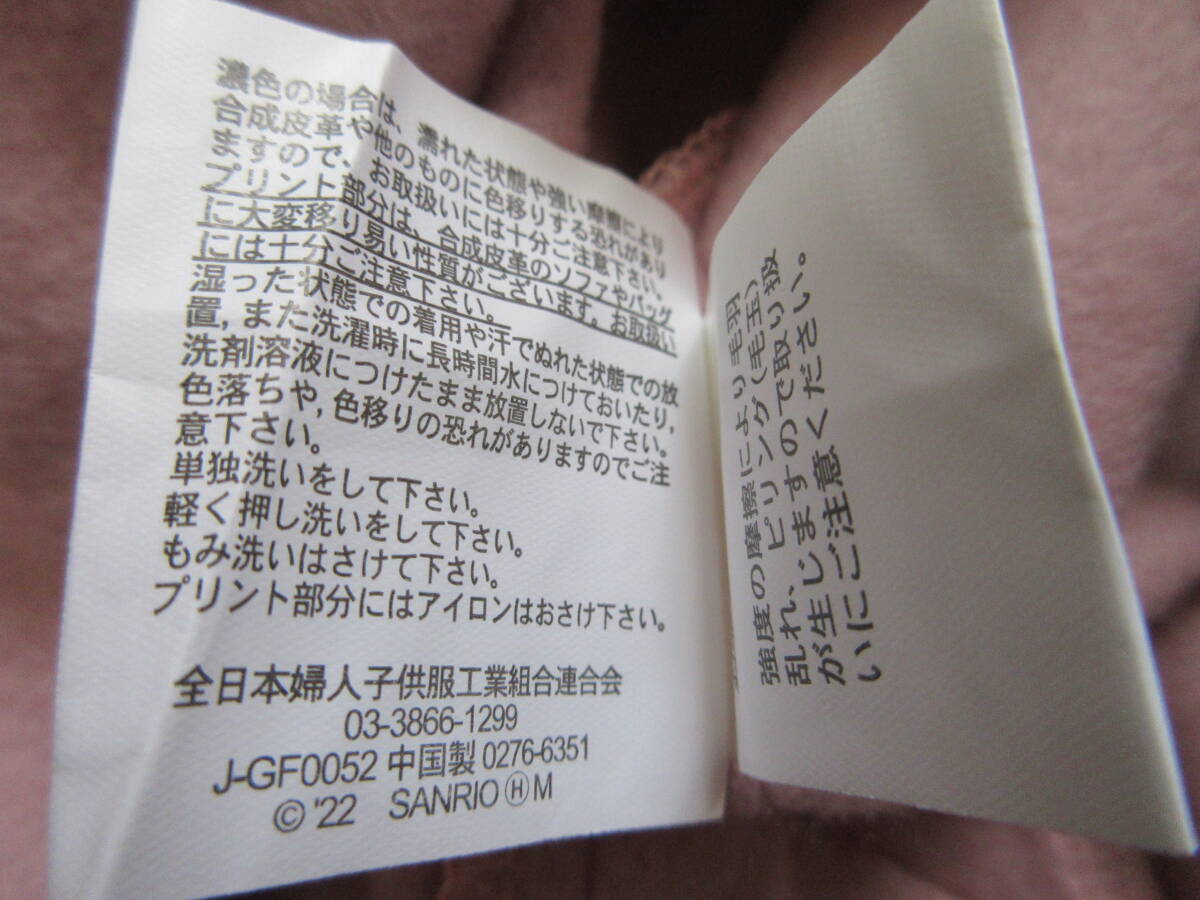 濃色の場合は、濡れた状態や強い摩擦により
合成皮革や他のものに色移りする恐れがあり
ますので、お取扱いには十分ご注意下さい。
プリント部分は、合成皮革のソファやバッグ
に大変移り易い性質がございます。お取扱い
には十分ご注意下さい。
湿った状態での着用や汗でぬれた状態での放
置,また洗濯時に長時間水につけておいたり,
洗剤溶液につけたまま放置しないで下さい。
色落ちや,色移りの恐れがありますのでご注
意下さい。
単独洗いをして下さい。
軽く押し洗いをして下さい。
もみ洗いはさけて下さい。
プリント部分にはアイロンはおさけ下さい。
全日本婦人子供服工業組合連合会
03-3866-1299
J-GF0052 中国製 0276-6351
© '22 SANRIO Ⓗ M
強度の摩擦により毛羽
乱れ、ピリング(毛玉)
が生じますので取り扱
いにご注意ください。